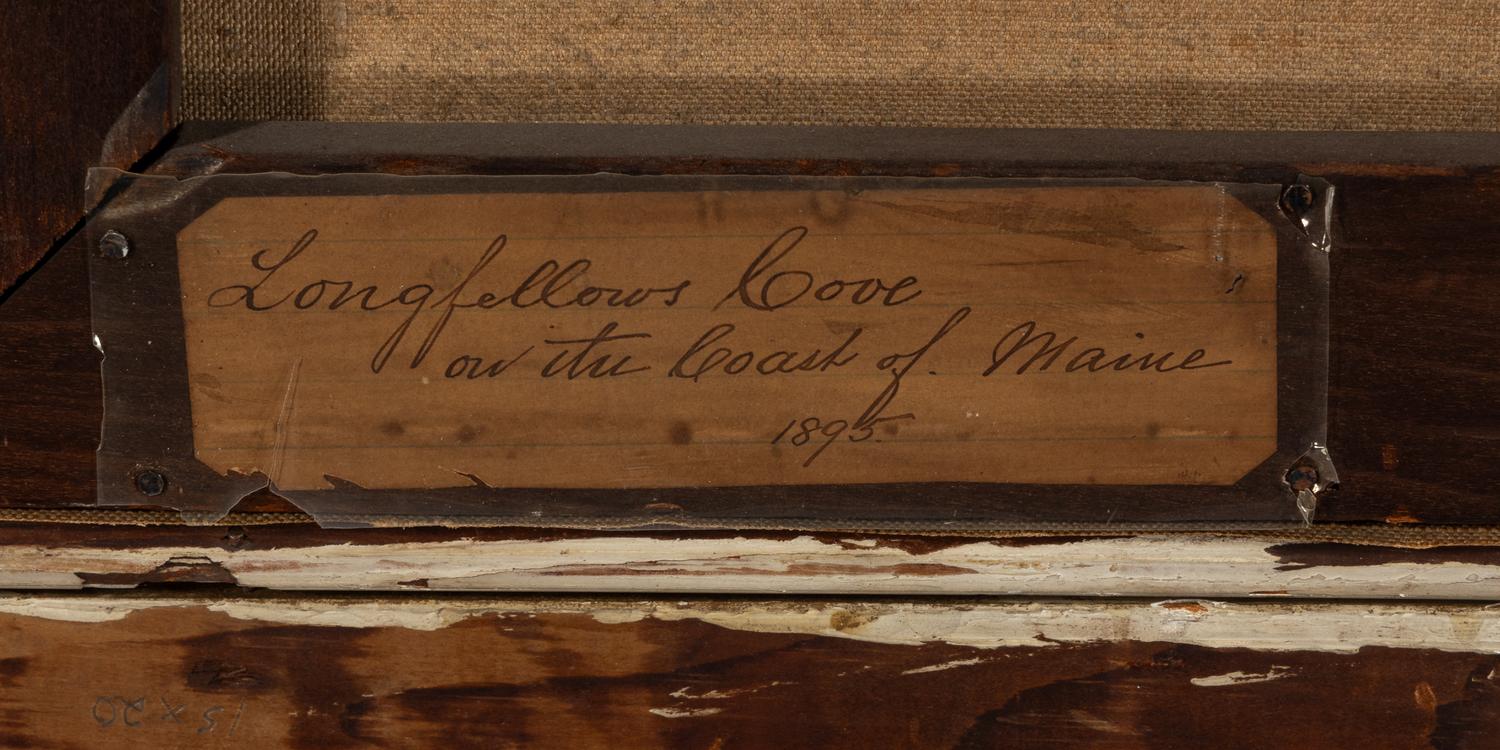 Longfellows Cove
on the Coast of. Maine
1895.
15 x 20